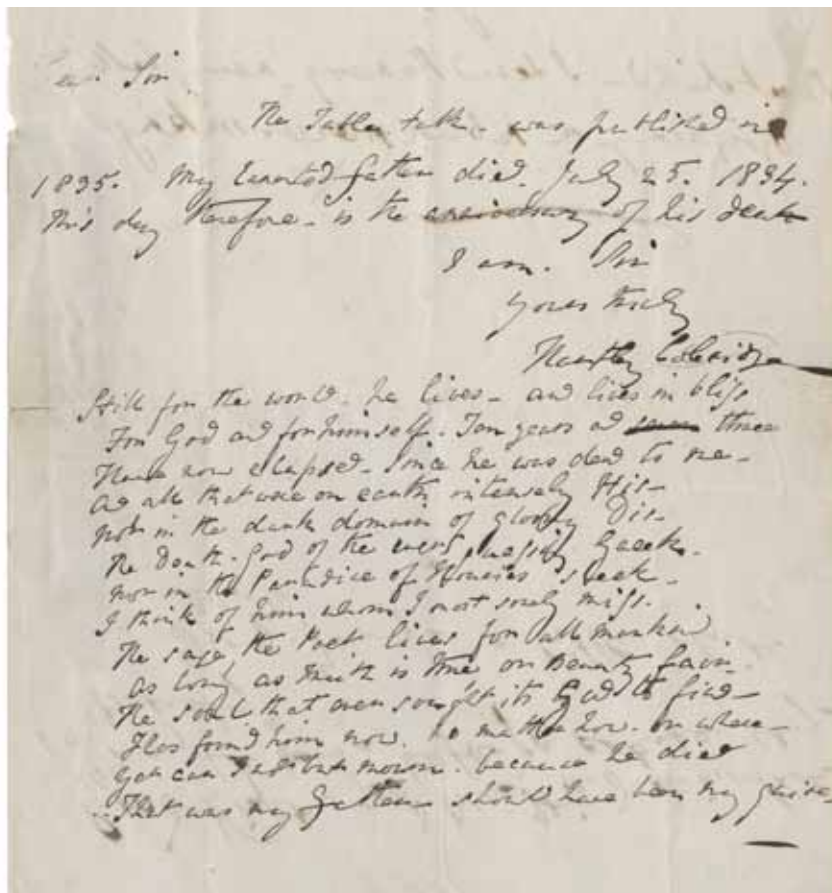 Sir
The Table talk - was published in
1835. My revered father died. July 25. 1834.
This day therefore - is the anniversary of his death
I am. Sir
Yours truly
Hartley Coleridge
Still for the world. he lives - and lives in bliss
For God and for himself. Ten years and three
Have now elapsed - Since he was dead to me -
And all that were on earth intensely His -
Not in the dank domain of gloomy Dis -
The Death-God of the ever guessing Greek -
Nor in the Paradise of Houries sleek -
I think of him whom I most sorely miss.
The sage, the Poet lives for all mankind
As long as Truth is true or Beauty fair.
The soul that ever sought its God to find -
Has found him now. no matter how. or where -
Yet can I not but mourn. because he died
That was my father should have been my guide -